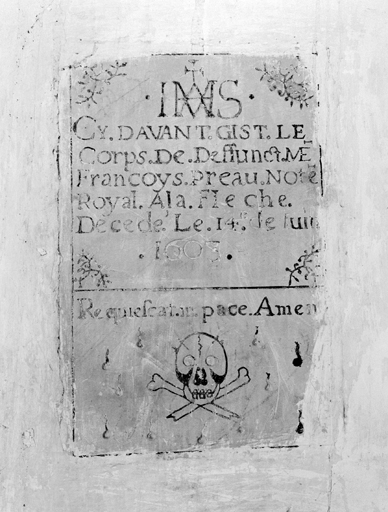 IHS
CY. DAVANT. GIST. LE
Corps. De. Deffunct. ME
Francoys. Preau. Notre
Royal. Ala. Fleche.
Decede, Le. 14. de Iuin
. 1603 .
Requiescat. in. pace. Amen